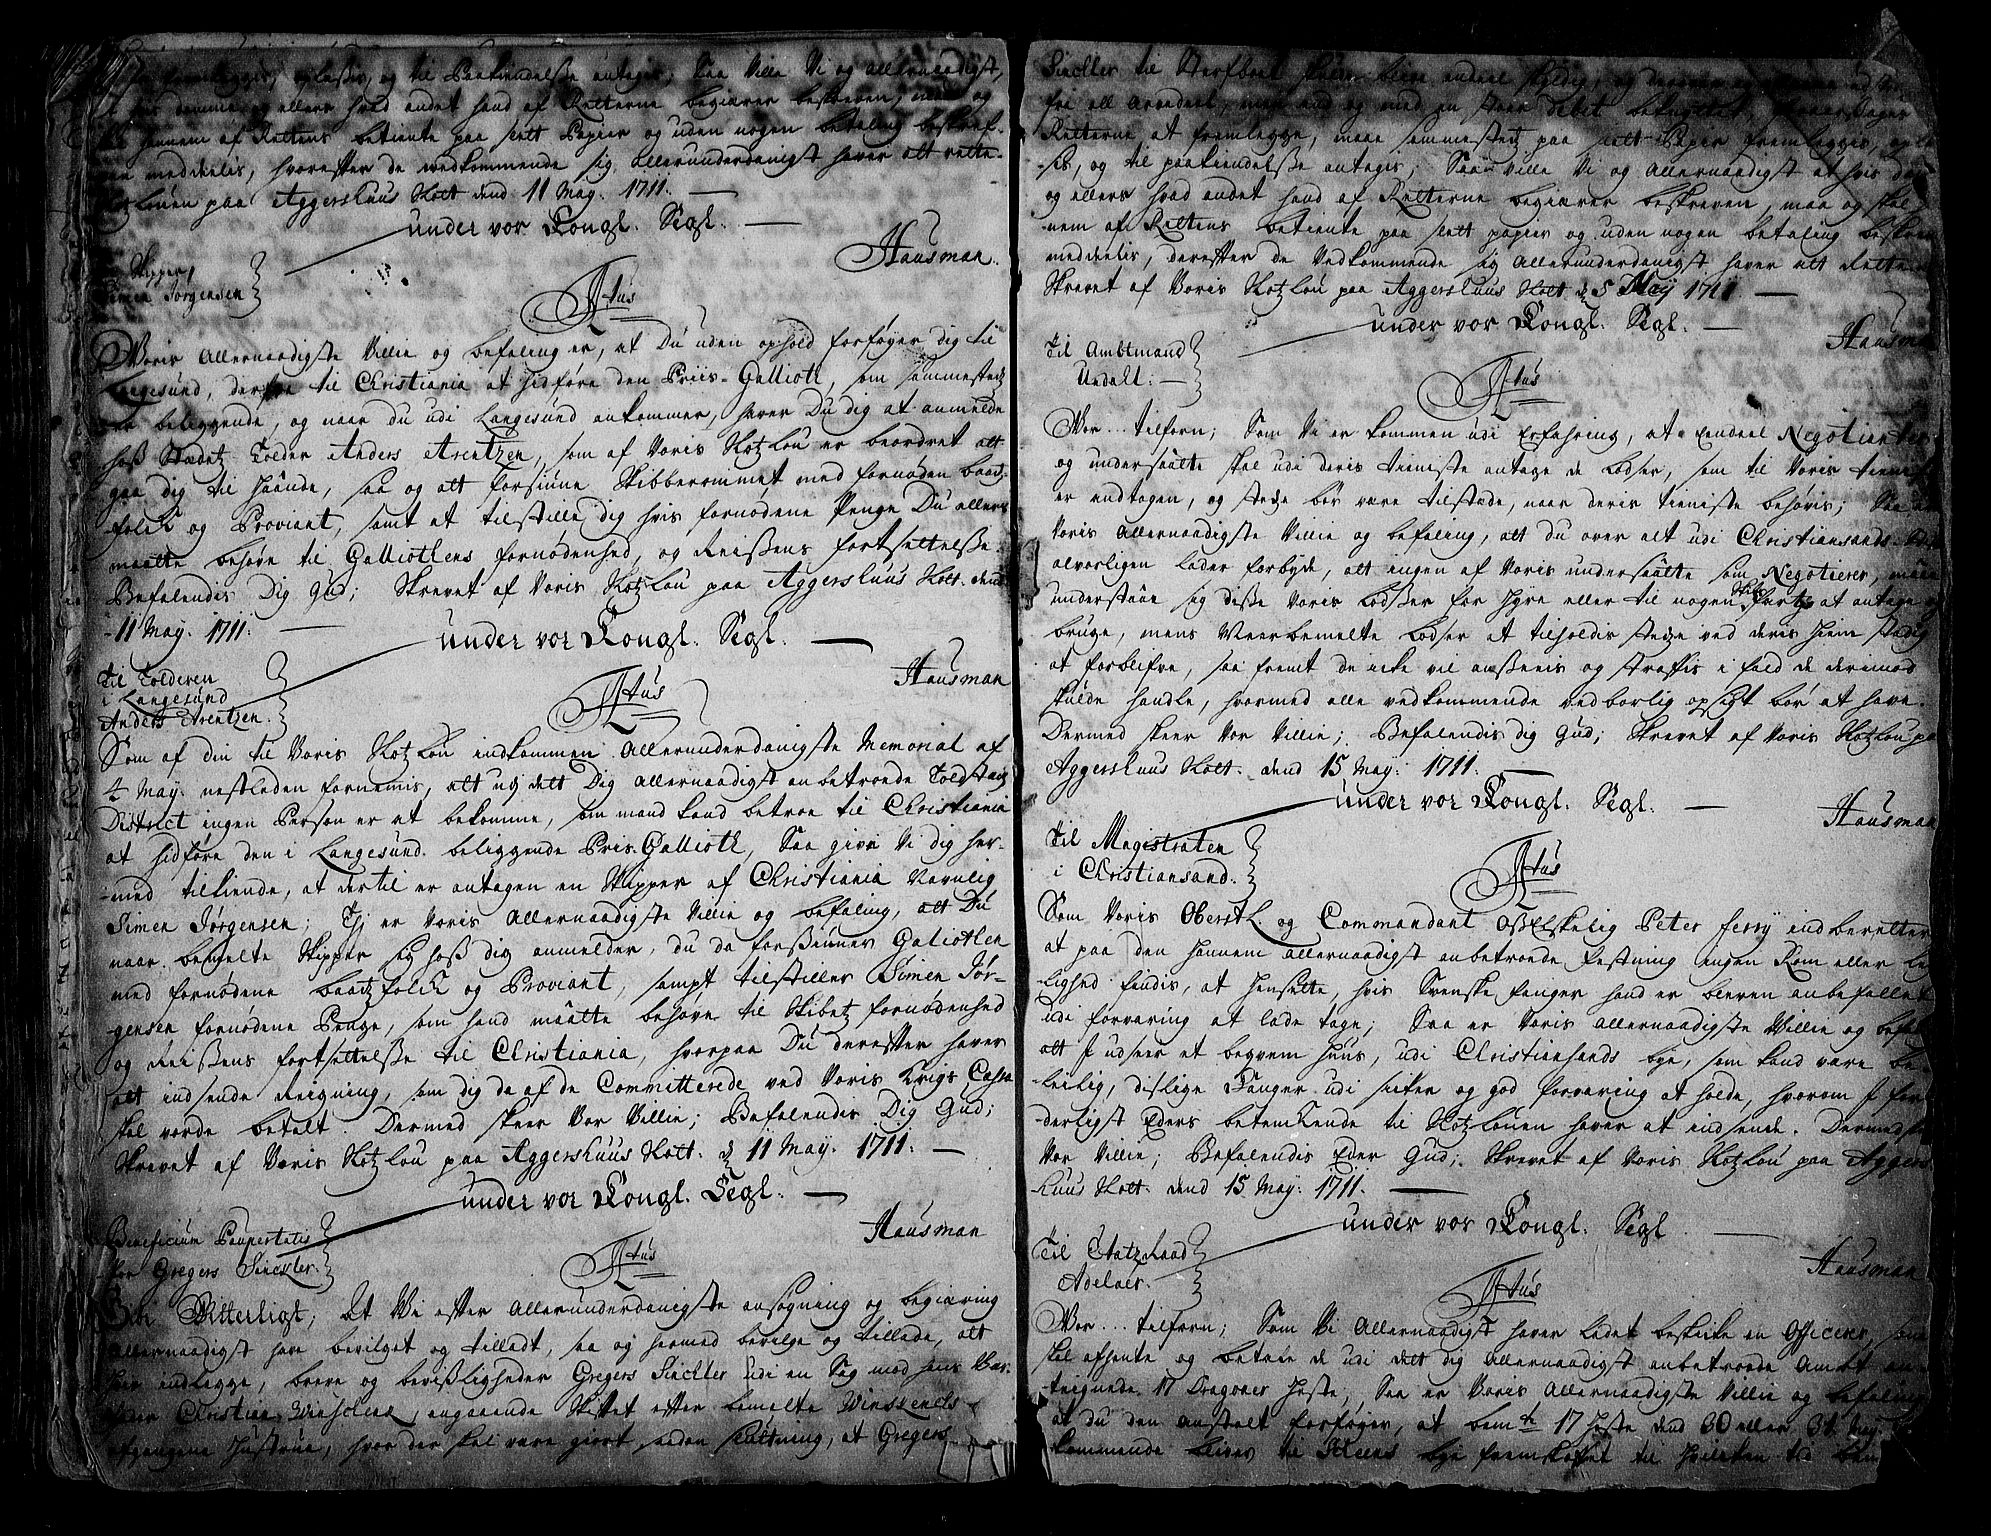 fremlegges, oplæses, og til Paakiendelse antages; Saa Ville Vi og Allernaadigst,
demme og ellers hvad andet hand af Retterne begiærer beskreven, maa og
hannem af Rettens betiente paa slett Papier og uden nogen betaling beskref-
meddelis, hvorefter de vedkommende sig allerunderdanigst haver att rette.
paa Aggershuus Slott dend 11 May. 1711.
under vor Kongl. Segl.
Hausman.
Skipper
Simen Jørgensen
Voris Allernaadigste Villie og befaling er, at Du uden ophold forføyer dig til
Langesund, derfra til Christiania at hidføre den Priis-Galliott, som sammestedz
er beliggende, og naar du udi Langesund ankommer, haver Du dig at anmelde
hoss Stedetz Tolder Anders Arentzen, som af Voris Slotzlou er beordret att
gaa dig til haande, saa og att forsiune Skibberommet med fornøden baads-
folck og Proviant, samt at tilstille dig hvis fornødene Penge Du allers
maatte behøve til Galliothens fornødenhed, og Reissens fortsettelse.
Befalendis Dig Gud; Skrevet af Voris Slotzlou paa Aggershuus Slott. dend
11 May. 1711.
under vor Kongl. Segl.
Hausman
Til Tolderen
i Langesund
Anders Arentzen.
Som af din til Voris Slotzlou indkommen Allerunderdanigste Memorial af
4 May. nestleden fornemmis, att udj dett Dig allernaadigst anbetroede Toldstæds
District ingen Person er at bekomme, som mand kand betroe til Christiania
at hidføre den i Langesund beliggende Pris-Galliott, Saa give Vi dig her-
med tilkiende, at dertil er antagen en Skipper af Christiania Navnlig
Simen Jørgensen; Thj er Voris Allernaadigste Villie og befaling, att Du
naar bemelte Skipper sig hoss dig anmelder, du da forssiuner Galiothen
med fornødene baadzfolck og Proviant, sampt tilstiller Simen Jør-
gensen fornødene Penge, som hand maatte behøve til Skibetz fornødenhed
og Reissens fortsettelse til Christiania, hvorpaa Du derefter haver
att indsende Reigning, som dig da af de Committerede ved Voris Krigs Cassa
skal vorde betalt. Dermed skeer Vor Villie; Befalendis Dig Gud;
Skrevet af Voris Slotzlou paa Aggershuus Slott. d 11 May. 1711.
under vor Kongl. Segl.
Hausman
Beneficium Paupertatis
for Gregers Sinckler.
Giør Vitterligt, At Vi efter Allerunderdanigste ansøgning og begiæring
Allernaadigst have bevilget og tilladt, saa og hermed bevilge og tillade, att
indlegge, breve og bevissligheder Gregers Sinckler udi en Sag mod hans
Christian, angaaende Skiftet efter bemelte
afgangene Hustrue, hvor der skal være giort saadan slutning, at Gregers
Sinckler til Sterfboet skulle blive endeel skyldig, og
fri all Arvedeel, men end og med en stoer debet
Retterne at fremlegge, maa sammestedz paa slett Papier fremlegges, oplæ-
ses, og til paakiendelse antages; Saa ville Vi og Allernaadigst at hvis
og ellers hvad andet hand af Retterne begiærer beskreven, maa og skal
nem af Rettens betiente paa slett papier og uden nogen betaling beskref
meddelis, derefter de Vedkommende sig allerunderdanigst haver att Rette
Skrevet af Voris Slotzlou paa Aggershuus Slott d 5 May 1711.
under vor Kongl. Segl.
Hausman
Til Ambtmand
Undalt.
Vor... tilforn; Som Vi er kommen udi Erfahring, at Eendeel Negotianter
og undersaatte skal udi deris tieniste antage de Lodser, som til Voris tieniste
er andtagen, og stedze bør være tilstæde, naar deris tieniste behøvis; Saa er
Voris Allernaadigste Villie og befaling, att du over alt udi Christiansands
alvorligen lader forbyde, att ingen af Voris undersaatte som Negotierer, maa
understaae sig disse Voris Lodsser for Hyre eller til nogen Skibs fart at antage
bruge, mens Meerbemelte Lodser at tilholdis stedze ved deris Hiem stadig
at forblifve, saa fremt de icke vil ansseeis og straffis i fald de derimod
skulde handle, hvormed alle vedkommende vedborlig opsigt bør at have.
Dermed skeer Vor Villie; Befalendis dig Gud; Skrevet af Voris Slotzlou paa
Aggershuus Slott. dend 15 May. 1711.
under vor Kongl. Segl.
Hausman
Til Magistraten
i Christiansand.
Som Voris Oberstl. og Commandant Oss Elskelig Peter Ferry indberetter
at paa den hannem allernaadigst anbetroede Festning ingen Rom eller lei-
lighed findis, at hensette, hvis Svenske fanger hand er bleven anbefallet
udi forvaring at lade tage; Saa er Voris allernaadigste Villie og befal
att I udseer et beqvem Huus, udi Christiansands bye, som kand være be-
leilig, dislige Fanger udi sicker og god forvaring at holde, hvorom I for-
derligst Eders betenckende til Slotzlouen haver at indsende. Dermed skeer
Vor Villie; Befalendis Eder Gud; Skrevet af Voris Slotzlou paa Aggers-
huus Slott. dend 15 May. 1711.
under vor Kongl. Segl
Hausman
Til Etatz Raad
Adelaer.
Vor... tilforn; Som Vi Allernaadigst haver ladet beskicke en Officerer, som
skal afhente og betale de udi dett dig Allernaadigst anbetroede Ambt
teignede 17 Dragoner Heste, Saa er Voris Allernaadigste Villie og befaling
at du den Anstalt forføyer, at bemte 17 Heste dend 30 eller 31 May
kommende blives til Skeens bye fremskaffet til hvilcken tid